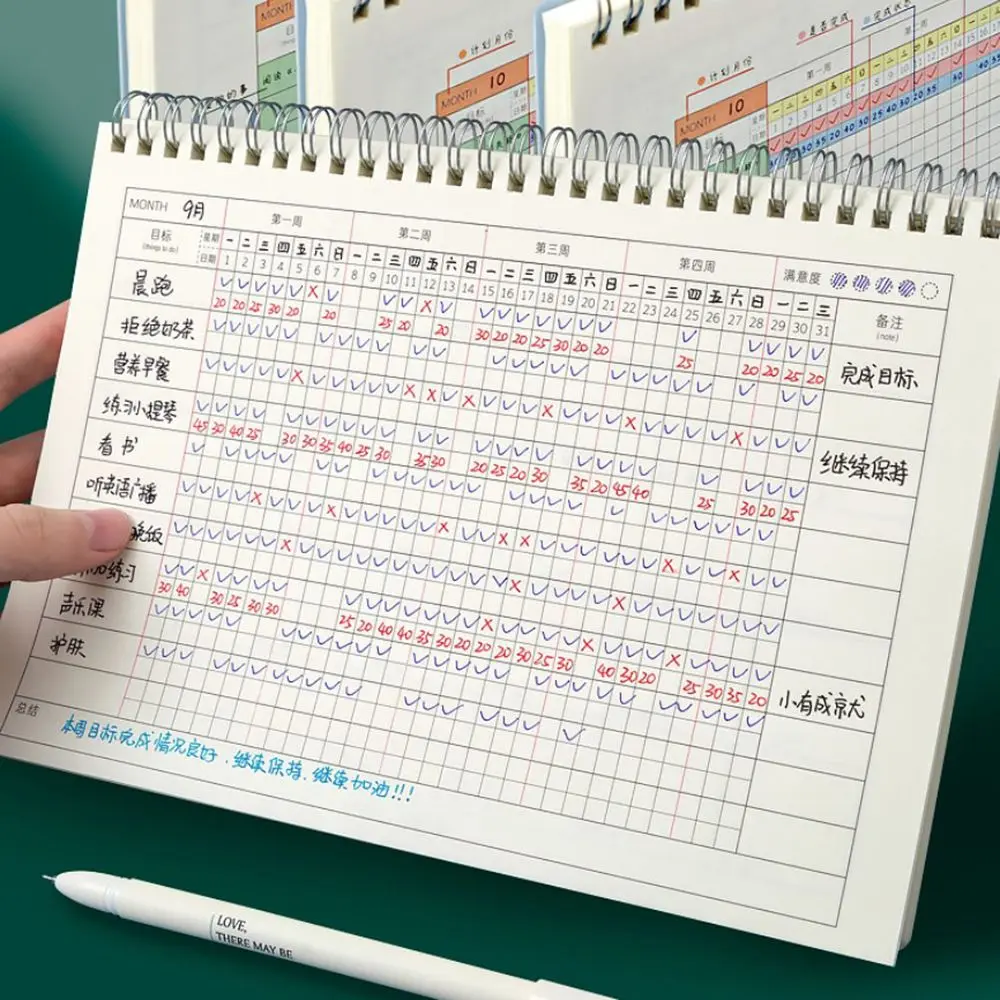 MONTH
MONTH 10
计划月份
MONTH 10
计划月份
是否完成
第一周
MONTH 9月 第一周 第二周 第三周 第四周 满意度
目标 星期 一 二 三 四 五 六 日 一 二 三 四 五 六 日 一 二 三 四 五 六 日 一 二 三 四 五 六 日 一 二 三 备注
(things to do) 日期 1 2 3 4 5 6 7 8 9 10 11 12 13 14 15 16 17 18 19 20 21 22 23 24 25 26 27 28 29 30 31 (note)
晨跑 ✓ ✓ ✓ ✓ ✓ X ✓ ✓ ✓ X ✓ ✓ ✓ ✓ ✓ ✓ ✓ ✓ ✓ ✓ ✓ ✓ ✓ 完成目标
20 20 25 30 20 20 25 20 20 30 20 20 25 30 20 20 25 20 20 25 20
拒绝奶茶
营养早餐
练习小提琴 继续保持
45 30 40 25 30 30 35 40 25 30 35 30 20 25 20 30 35 20 45 40 25 30 20 25
看书
听英语广播
晚饭
练习
30 40 30 25 30 30 25 20 40 40 35 30 20 20 20 30 25 30 40 30 20 25 30 35 20 小有成就
声乐课
护肤
总结
本周目标完成情况良好，继续保持、继续加油!!!
LOVE,
THERE MAY BE